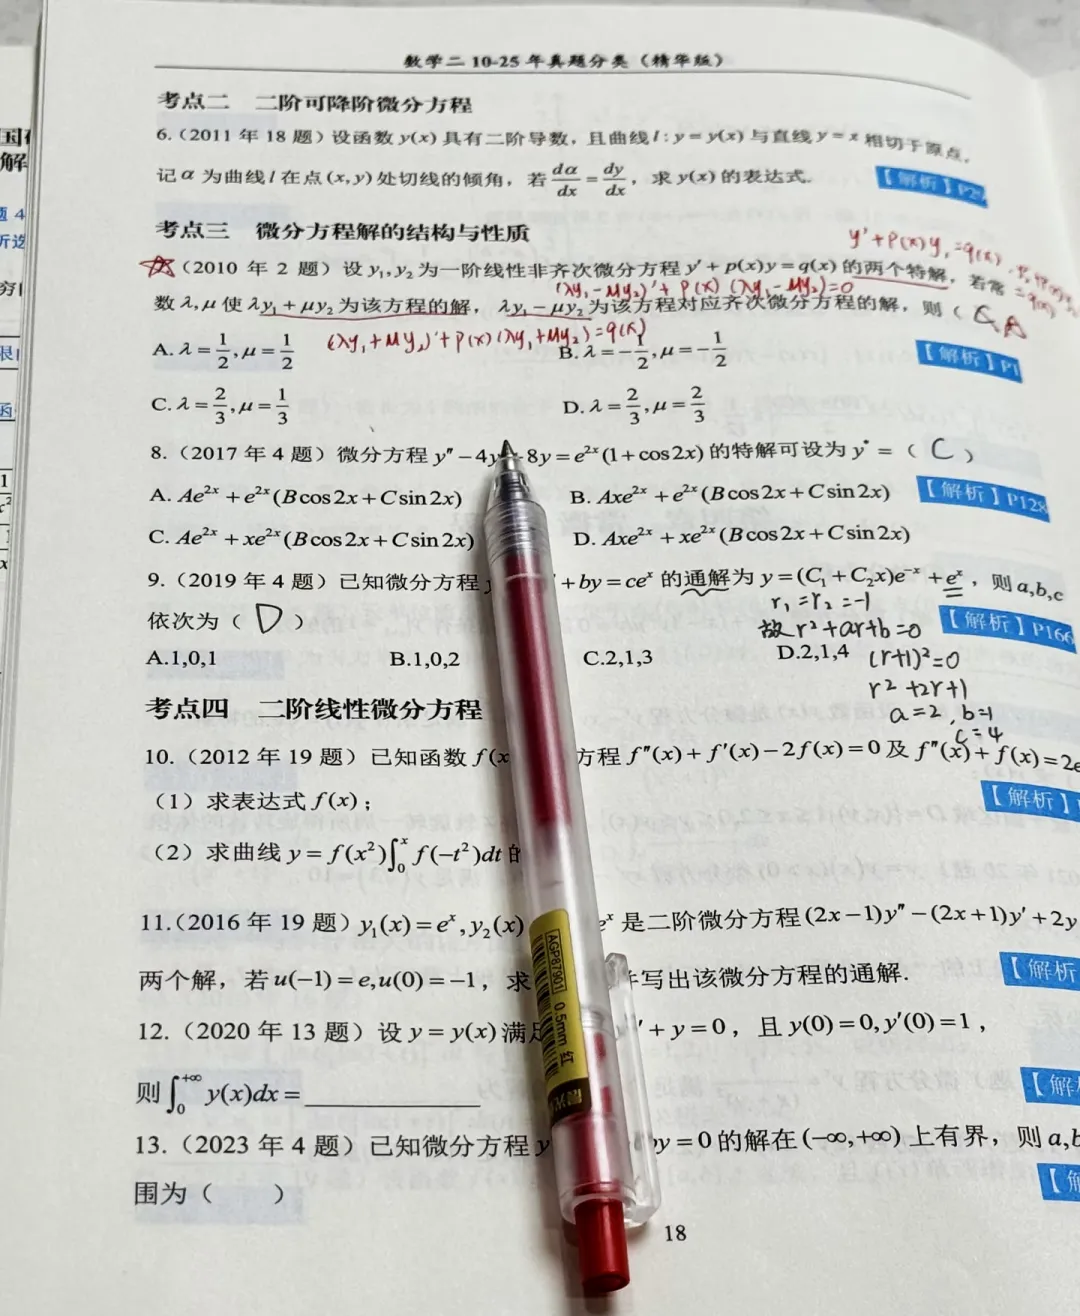 数学二 10-25 年真题分类（精华版）
考点二 二阶可降阶微分方程
6.（2011 年 18 题）设函数 y(x) 具有二阶导数，且曲线 l : y = y(x) 与直线 y = x 相切于原点，
记 α 为曲线 l 在点 (x, y) 处切线的倾角，若 dα/dx = dy/dx，求 y(x) 的表达式.
【解析】
考点三 微分方程解的结构与性质
y′+p(x)y₁=q(x)
（2010 年 2 题）设 y₁, y₂ 为一阶线性非齐次微分方程 y′ + p(x)y = q(x) 的两个特解，若常
(λy₁-μy₂)′+p(x)(λy₁-μy₂)=0
数 λ, μ 使 λy₁ + μy₂ 为该方程的解，λy₁ − μy₂ 为该方程对应齐次微分方程的解，则（ A
(λy₁+μy₂)′+p(x)(λy₁+μy₂)=q(x)
A. λ = 1/2, μ = 1/2 B. λ = −1/2, μ = −1/2 【解析】P1
C. λ = 2/3, μ = 1/3 D. λ = 2/3, μ = 2/3
8.（2017 年 4 题）微分方程 y″ − 4y 8y = e²ˣ(1 + cos 2x) 的特解可设为 y* =（ C ）
A. Ae²ˣ + e²ˣ(B cos 2x + C sin 2x) B. Axe²ˣ + e²ˣ(B cos 2x + C sin 2x) 【解析】P128
C. Ae²ˣ + xe²ˣ(B cos 2x + C sin 2x) D. Axe²ˣ + xe²ˣ(B cos 2x + C sin 2x)
9.（2019 年 4 题）已知微分方程 + by = ceˣ 的通解为 y = (C₁ + C₂x)e⁻ˣ + eˣ，则 a, b, c
r₁=r₂=-1
依次为（ D ） 【解析】P166
故r²+ar+b=0
A.1,0,1 B.1,0,2 C.2,1,3 D.2,1,4
(r+1)²=0
r²+2r+1
a=2, b=1
c=4
考点四 二阶线性微分方程
10.（2012 年 19 题）已知函数 f(x 方程 f″(x) + f′(x) − 2f(x) = 0 及 f″(x) + f(x) = 2e
（1）求表达式 f(x)； 【解析】
（2）求曲线 y = f(x²)∫₀ˣ f(−t²)dt 的
11.（2016 年 19 题）y₁(x) = eˣ, y₂(x) eˣ 是二阶微分方程 (2x − 1)y″ − (2x + 1)y′ + 2y
【解析
两个解，若 u(−1) = e, u(0) = −1，求 并写出该微分方程的通解.
12.（2020 年 13 题）设 y = y(x) 满足 ′ + y = 0，且 y(0) = 0, y′(0) = 1，
则 ∫₀⁺∞ y(x)dx = ________
13.（2023 年 4 题）已知微分方程 y by = 0 的解在 (−∞, +∞) 上有界，则 a, b
围为（ ）
18
AGP87901 0.5mm 红